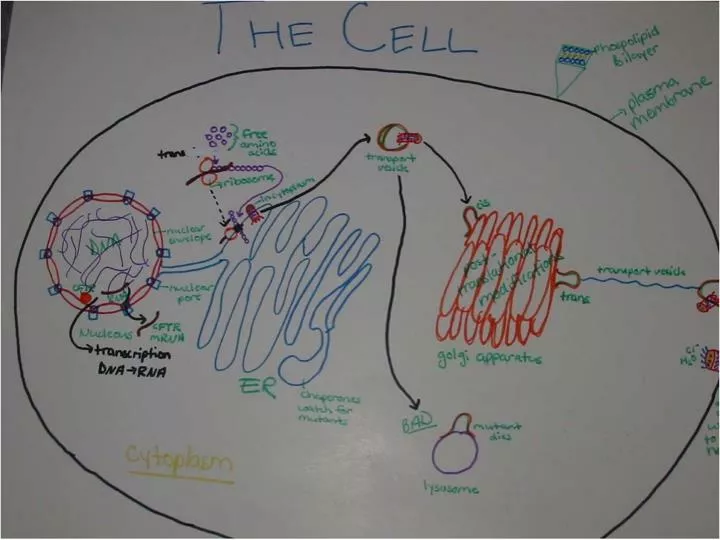 THE CELL
phospolipid
bilayer
plasma
membrane
free
amino
acids
trans
ribosome
in cytoplasm
transport
vesicle
nuclear
envelope
DNA
nuclear
port
CFTR
RNA
Nucleus
CFTR
mRNA
transcription
DNA→RNA
ER
Chaperones
watch for
mutants
cis
post-
translational
modifications
trans
transport vesicle
golgi apparatus
Cl⁻
H₂O
BAD
mutant
dies
lysosome
Cytoplasm